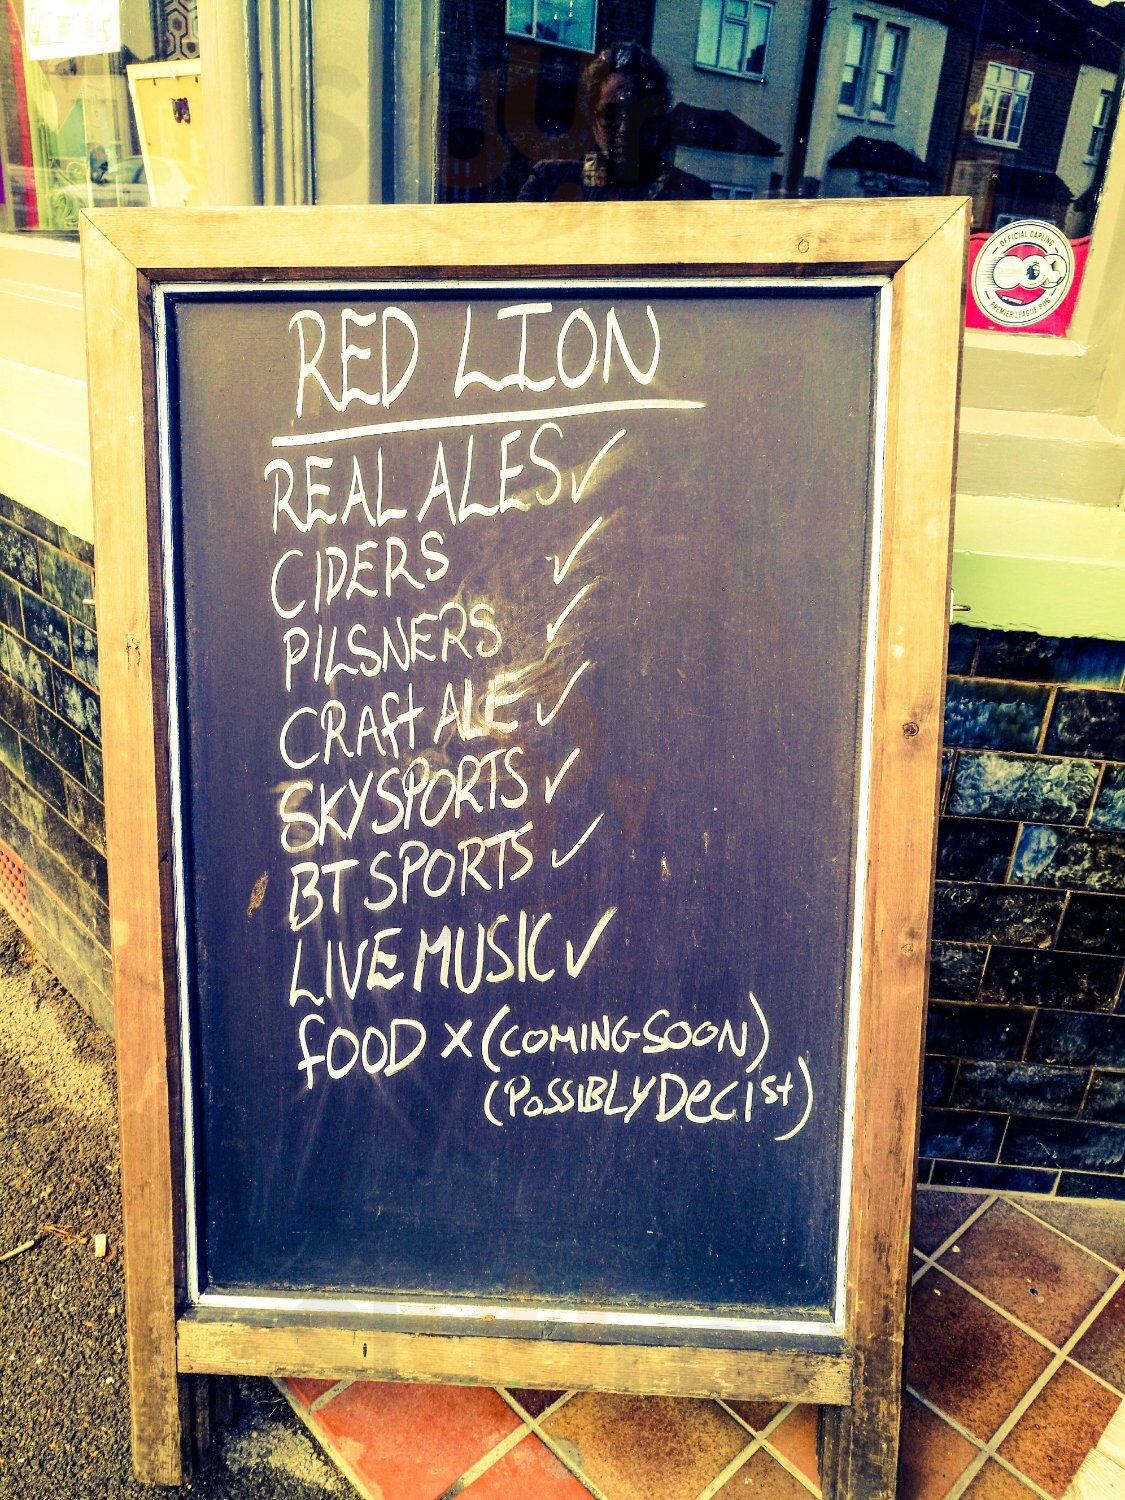 RED LION
REAL ALES ✓
CIDERS ✓
PILSNERS ✓
CRAft ALE ✓
SKY SPORTS ✓
BT SPORTS ✓
LIVE MUSIC ✓
fOOD X (COMING SOON)
(POSSIBLY Dec 1st)
OFFICIAL CARLING
PREMIER LEAGUE PUB